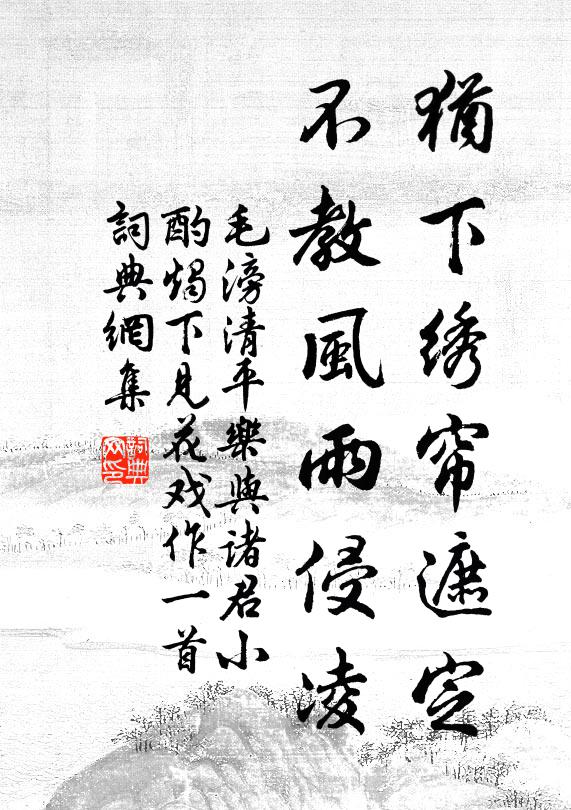 猶下绣帘遮定
不教風雨侵凌
毛滂清平樂與諸君小
酌燭下見花戏作一首
詞典網集
詞典网印